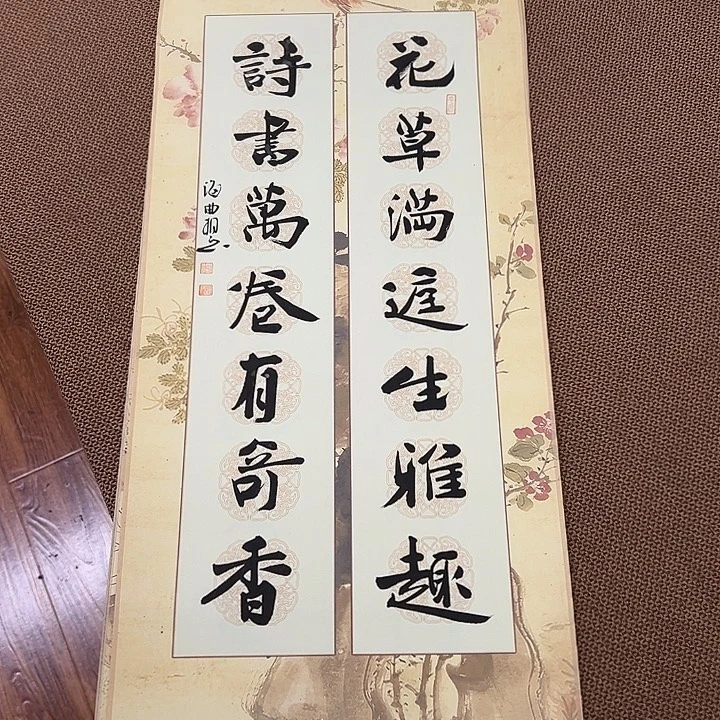 花草滿庭生雅趣
詩書萬卷有奇香